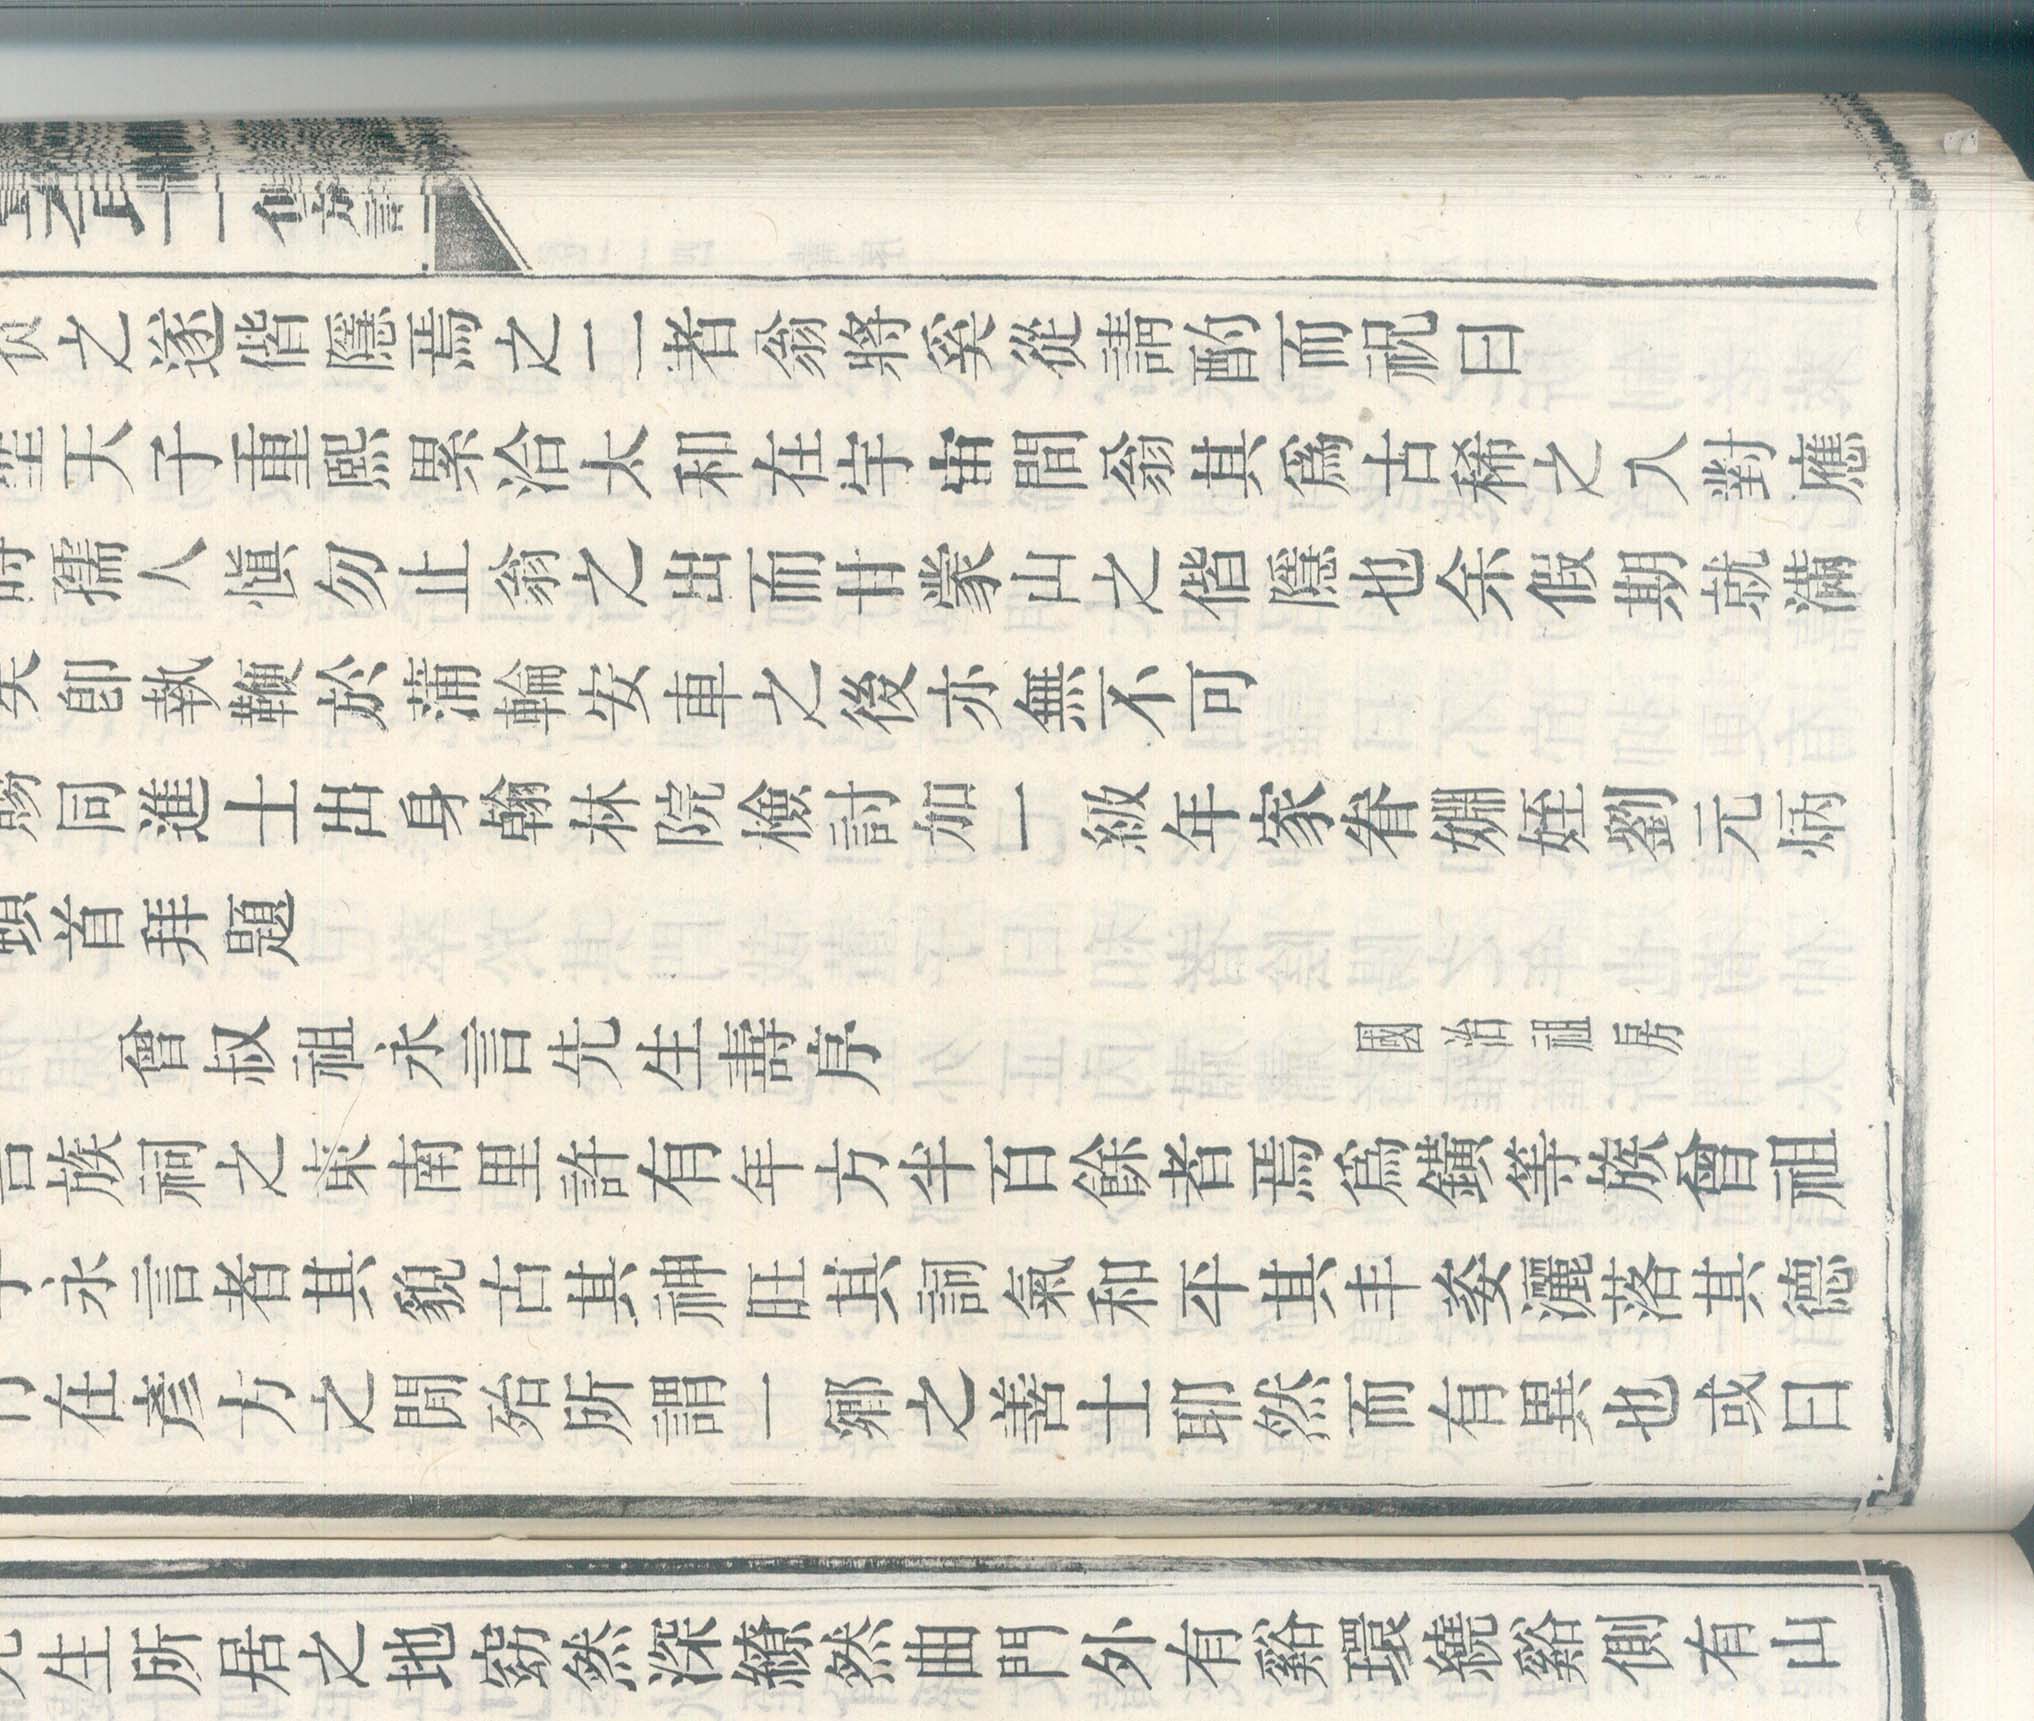 從之遂偕隱焉之二者翁將奚從請酌而祝曰
聖天子重熙累洽太和在宇宙間翁其爲古稀之人對應
時孺人愼勿止翁之出而甘蒙山之偕隱也余假期就滿
矣卽執鞭於蒲輪安車之後亦無不可
賜同進士出身翰林院檢討加一級年家眷婣姪劉元炳
頓首拜題
曾叔祖永言先生壽序 國治祖房
族祠之東南里許有年方半百餘者焉爲鐄等族曾祖
永言者其貌古其神旺其詞氣和平其丰姿灑落其德
在彥方之閒殆所謂一鄉之善士耶然而有異也或曰
先生所居之地窈然深繚然曲門外有谿環繞谿側有山